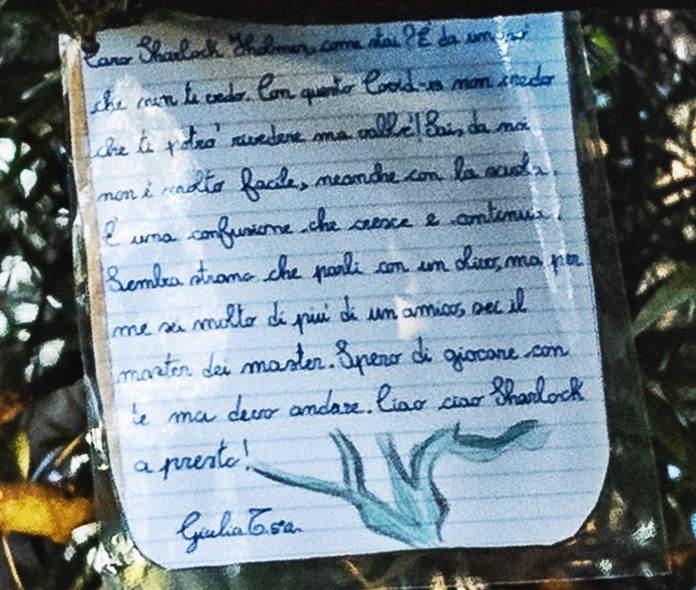 Caro Sharlock Holmes, come stai? È da un po'
che non ti vedo. Con questo Covid-19 non credo
che ti potrò rivedere ma vabbè! Sai, da noi
non è molto facile, neanche con la scuola.
È una confusione che cresce e continua.
Sembra strano che parli con un ulivo, ma per
me sei molto di più di un amico, sei il
master dei master. Spero di giocare con
te ma devo andare. Ciao ciao Sharlock
a presto!
Giulia